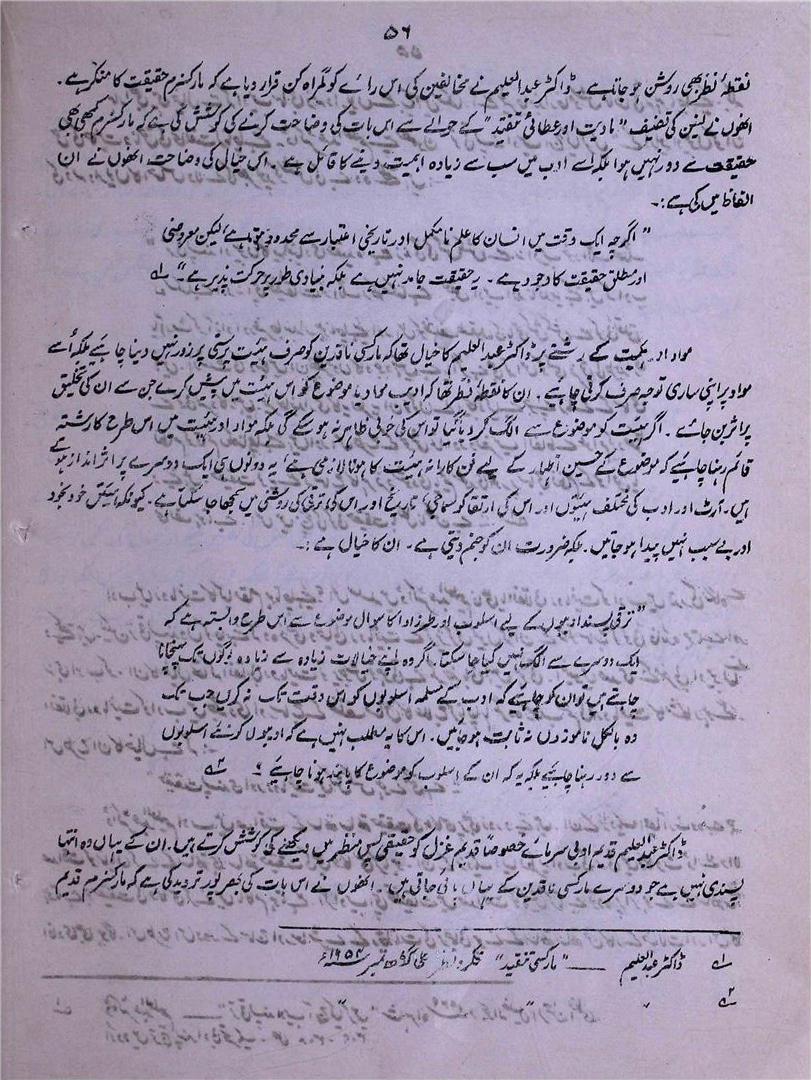 ۵۶
نقطۂ نظر بھی روشن ہو جاتا ہے۔ ڈاکٹر عبدالعلیم نے مخالفین کی اس رائے کو گمراہ کن قرار دیا ہے کہ مارکسزم حقیقت کا منکر ہے۔
انھوں نے لینن کی تصنیف "مادیت اور عطائی تنقید" کے حوالے سے اس بات کی وضاحت کرنے کی کوشش کی ہے کہ مارکسزم کبھی بھی
حقیقت سے دور نہیں ہوا بلکہ اسے ادب میں سب سے زیادہ اہمیت دینے کا قائل ہے۔ اس خیال کی وضاحت انھوں نے ان
الفاظ میں کی ہے:۔
"اگرچہ ایک وقت میں انسان کا علم نامکمل اور تاریخی اعتبار سے محدود ہوتا ہے لیکن معروضی
اور مطلق حقیقت کا وجود ہے۔ یہ حقیقت جامد نہیں ہے بلکہ بنیادی طور پر حرکت پذیر ہے۔" ۱ے
مواد اور ہئیت کے رشتے پر ڈاکٹر عبدالعلیم کا خیال تھا کہ مارکسی ناقدین کو صرف ہیئت پرستی پر زور نہیں دینا چاہئیے بلکہ اُسے
مواد پر اپنی ساری توجہ صرف کرنی چاہئیے۔ ان کا نقطۂ نظر تھا کہ ادیب مواد یا موضوع کو اس ہیئت میں پیش کرے جن سے ان کی تخلیق
پر اثر بن جائے۔ اگر ہیئت کو موضوع سے الگ کر دیا گیا تو اس کی خوبی ظاہر نہ ہو سکے گی بلکہ مواد اور ہیئت میں اس طرح کا رشتہ
قائم رہنا چاہئیے کہ موضوع کے حسین اظہار کے لیے فن کارانہ ہیئت کا ہونا لازمی ہے، یہ دونوں ہی ایک دوسرے پر اثر انداز ہوتے
ہیں۔ آرٹ اور ادب کی مختلف ہیئتوں اور اس کی ارتقا کو سماجی تاریخ اور اس کی ترقی کی روشنی میں سمجھا جا سکتا ہے۔ کیونکہ ہیئتیں خود بخود
اور بے سبب نہیں پیدا ہو جاتیں۔ بلکہ ضرورت ان کو جنم دیتی ہے۔ ان کا خیال ہے:۔
"ترقی پسند ادیبوں کے لیے اسلوب اور طرز ادا کا سوال موضوع سے اس طرح وابستہ ہے کہ
ایک دوسرے سے الگ نہیں کیا جا سکتا۔ اگر وہ اپنے خیالات زیادہ سے زیادہ لوگوں تک پہنچانا
چاہتے ہیں تو ان کو چاہئیے کہ ادب کے مسلمہ اسلوبوں کو اس وقت تک نہ کریں جب تک
وہ بالکل ناموزوں نہ ثابت ہو جائیں۔ اس کا یہ مطلب نہیں ہے کہ ادیبوں کو نئے اسلوبوں
سے دور رہنا چاہئیے بلکہ یہ کہ ان کے اسلوب کو موضوع کا پابند ہونا چاہئیے" ۲ے
ڈاکٹر عبدالعلیم قدیم ادبی سرمائے خصوصاً قدیم غزل کو حقیقی پس منظر میں دیکھنے کی کوشش کرتے ہیں۔ ان کے یہاں وہ انتہا
پسندی نہیں ہے جو دوسرے مارکسی ناقدین کے یہاں پائی جاتی ہیں۔ انھوں نے اس بات کی بھرپور تردید کی ہے کہ مارکسزم قدیم
۱ے ڈاکٹر عبدالعلیم ——— "مارکسی تنقید" فکر و نظر علی گڑھ ستمبر ۱۹۵۴ء
۲ے " "